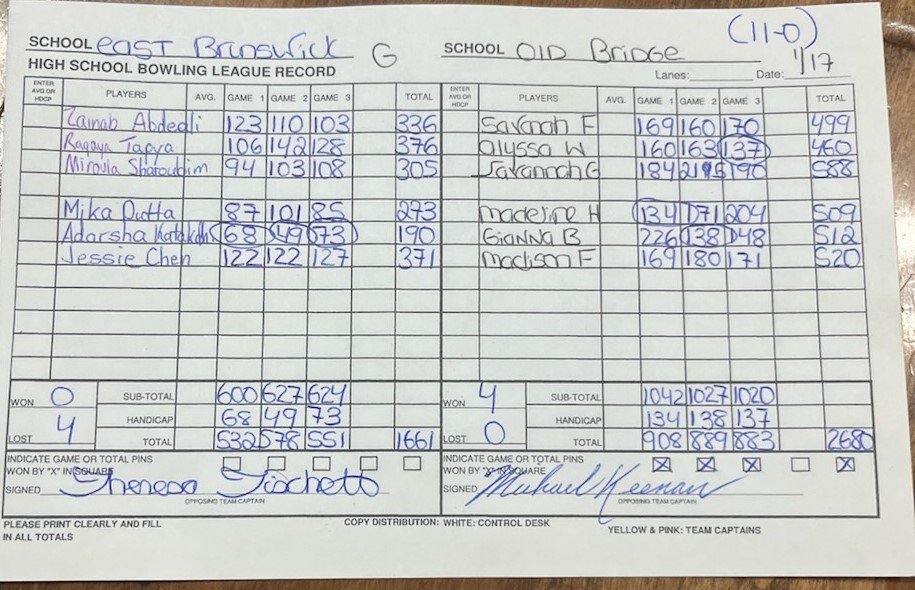 (11-0)
SCHOOL East Brunswick G SCHOOL Old Bridge
HIGH SCHOOL BOWLING LEAGUE RECORD Lanes: Date: 1/17
ENTER AVG OR HDCP PLAYERS AVG. GAME 1 GAME 2 GAME 3 TOTAL ENTER AVG OR HDCP PLAYERS AVG. GAME 1 GAME 2 GAME 3 TOTAL
Zainab Abdeali 123 110 103 336 Savanah F 169 160 170 499
106 142 128 376 Alyssa W 160 163 137 460
94 103 108 305 Savannah G 184 190 588
Mika Dutta 87 101 85 273 Madeline H 134 171 204 509
Adarsha 68 49 73 190 Gianna B 226 138 148 512
Jessie Chen 122 122 127 371 Madison F 169 180 171 520
WON 0 SUB-TOTAL 600 627 624 WON 4 SUB-TOTAL 1042 1027 1020
HANDICAP 68 49 73 HANDICAP 134 138 137
LOST 4 TOTAL 532 578 551 1661 LOST 0 TOTAL 908 889 883 2680
INDICATE GAME OR TOTAL PINS INDICATE GAME OR TOTAL PINS
WON BY "X" IN SQUARE WON BY "X" IN SQUARE X X X X
SIGNED Theresa SIGNED Michael Keenan
OPPOSING TEAM CAPTAIN OPPOSING TEAM CAPTAIN
PLEASE PRINT CLEARLY AND FILL COPY DISTRIBUTION: WHITE: CONTROL DESK YELLOW & PINK: TEAM CAPTAINS
IN ALL TOTALS